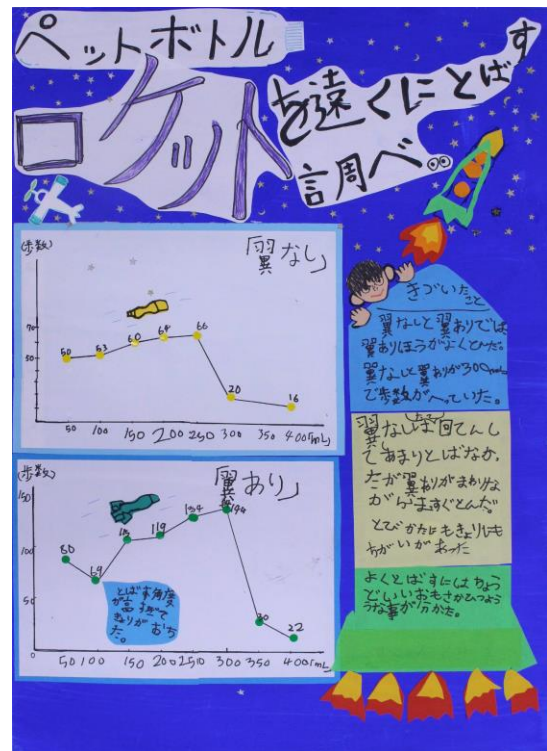 ペットボトル
ロケットを遠くにとばす
調べ
(歩数)
「翼なし」
70
50
50
53
60
64
66
20
16
50 100 150 200 250 300 350 400(mL)
(歩数)
「翼あり」
150
100
50
0
80
69
119
144
30
22
とばす角度
きょりがおち
た。
50 100 150 200 250 300 350 400(mL)
きづいた
こと
翼なしと翼ありでは
翼ありほうがよくとんだ。
翼なしと翼ありが300mL
で歩数がへっていた。
翼なしは回てんし
てあまりとばなか
たが翼ありがまわりな
がらますぐとんだ。
とびかたにもきょりにも
ちがいがあった
よくとばすにはちょう
どいいおもさがひつよう
な事が分かった。